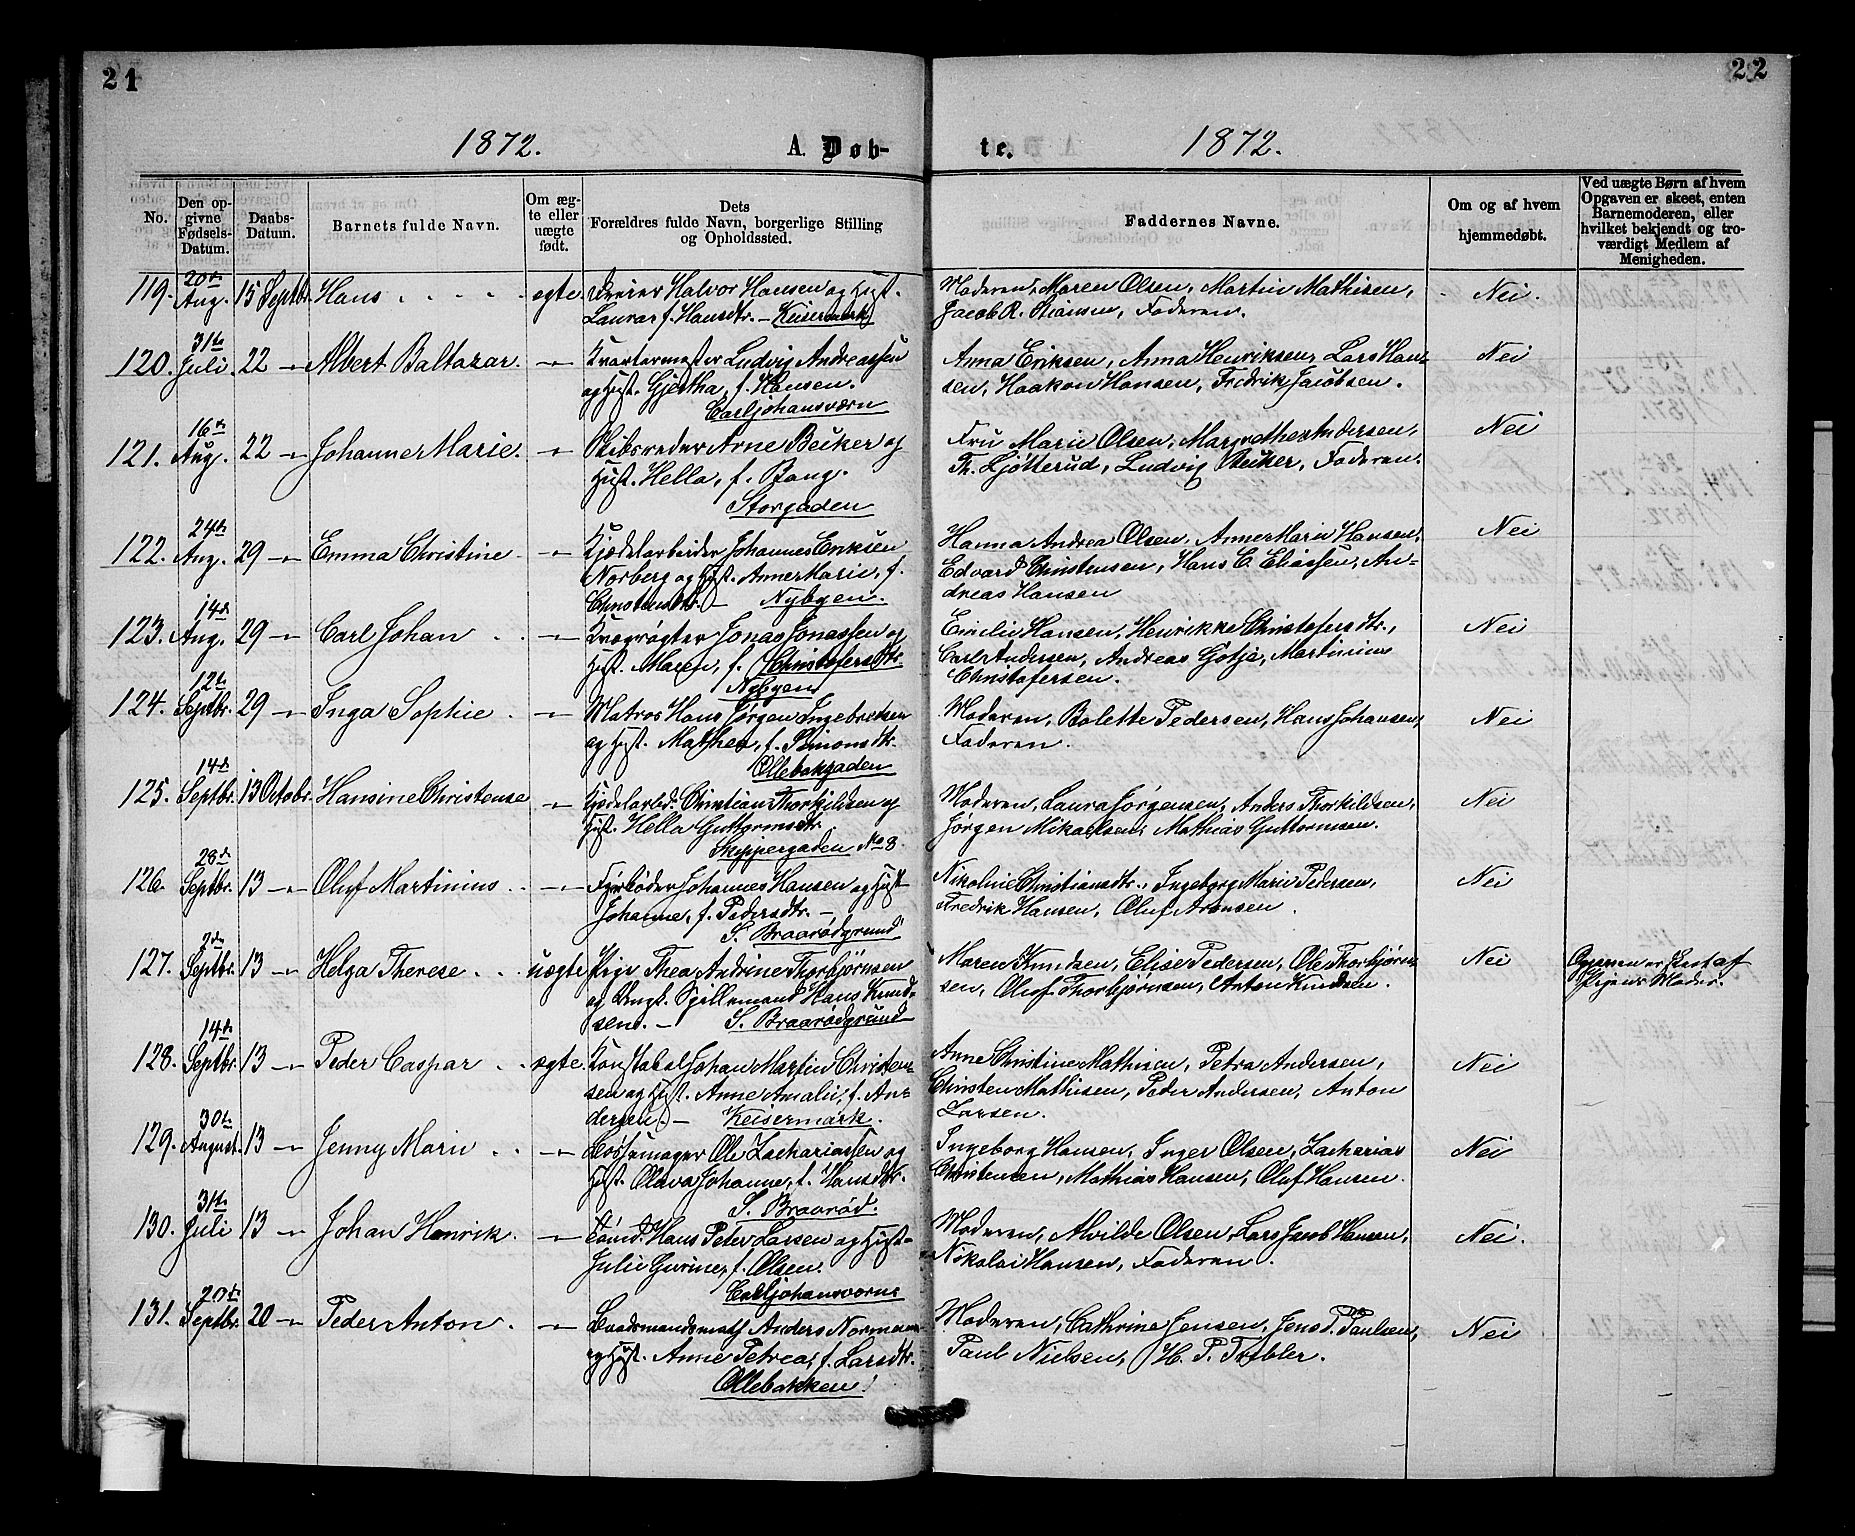 21
22
1872.
A. Døb-
te.
1872.
No.
Den op-
givne
Fødsels-
Datum.
Daabs-
Datum.
Barnets fulde Navn.
Om æg-
te eller
uægte
født.
Dets
Forældres fulde Navn, borgerlige Stilling
og Opholdssted.
Faddernes Navne.
Om og af hvem
hjemmedøbt.
Ved uægte Børn af hvem
Opgaven er skeet, enten
Barnemoderen, eller
hvilket bekjendt og tro-
værdigt Medlem af
Menigheden.
119. 20de Aug. 15 Septbr. Hans ægte Dreier Halvor Hansen og Hust.
Laura, f. Hansdtr. - Keisermark
Moderen, Maren Olsen, Martin Mathisen,
Jacob R. Stiansen, Faderen.
Nei.
120. 31te Juli. 22 - Albert Baltazar. - Kvartermester Ludvig Andreassen
og Hust. Gjertha, f. Hansen.
Carljohansværn
Anna Eriksen, Anna Henriksen, Lars Han-
sen, Haakon Hansen, Fredrik Jacobsen.
Nei
121. 16de Aug. 22 - Johanne Marie. - Skibsreder Arne Becker og
Hust. Hella, f. Bang.
Storgaden
Fru Marie Olsen, Margrethe Andersen,
Th. Ljøtterud, Ludvig Becker, Faderen.
Nei
122. 24de Aug. 29 - Emma Christine - Kjedelarbeider Johannes Eriksen
Norberg og Hust. Anne Marie, f.
Christensdtr. - Nybyen.
Hanna Andrea Olsen, Anne Marie Hansen,
Edvard Christensen, Hans C. Eliassen, An-
dreas Hansen
Nei
123. 14de Aug. 29 - Carl Johan - Kvægrøgter Jonas Jonassen og
Hust. Maren, f. Christofersdtr.
Nybyen
Emilie Hansen, Henrikke Christofersdtr.,
Carl Andersen, Andreas Gotje, Martinius
Christofersen.
Nei
124. 12te Septbr. 29 - Inga Sophie - Matros Hans Jørgen Ingebretsen
og Hust. Mathea, f. Simonsdtr.
Ollebakgaden
Moderen, Bolette Pedersen, Hans Johansen,
Faderen.
Nei
125. 14de Septbr. 13 Octobr. Hansine Christense - Kjedelarbd. Christian Thorkildsen og
Hust. Hella Guttormsdtr.
Skippergaden No 8.
Moderen, Laura Jørgensen, Anders Thorkildsen,
Jørgen Mikaelsen, Mathias Guttormsen.
Nei
126. 28de Septbr. 13 - Oluf Martinius - Fyrbøder Johannes Hansen og Hust
Johanne, f. Pedersdtr. -
S. Braarødgrund
Nikoline Christiansdtr., Ingeborg Marie Pedersen,
Fredrik Hansen, Oluf Aronsen.
Nei
127. 2den Septbr. 13 - Helga Therese uægte Pige Thea Andrine Thorbjørnsen
og Ungk. Spillemand Hans Knud-
sen. - S. Braarødgrund
Maren Knudsen, Elise Pedersen, Ole Thorbjørn-
sen, Oluf Thorbjørnsen, Anton Knudsen.
Nei
Opgaven er skeet af
Pigens Moder.
128. 14de Septbr. 13 - Peder Caspar ægte. Konstabel Johan Martin Christen-
sen og Hust. Anne Amalie, f. An-
dersen. - Keisermark.
Anne Christine Mathisen, Petra Andersen,
Christen Mathisen, Peder Andersen, Anton
Larsen.
Nei
129. 30te August. 13 - Jenny Marie - Bøssemager Ole Zachariassen og
Hust. Olava Johanne, f. Hansdtr.
S. Braarød.
Ingeborg Hansen, Inger Olsen, Zacharias
Christensen, Mathias Hansen, Oluf Hansen.
Nei
130. 31te Juli 13 - Johan Henrik. - Tømd. Hans Peter Larsen og Hust
Julie Gurine, f. Olsen.
Carljohansværn
Moderen, Alvilde Olsen, Lars Jacob Hansen,
Nikolai Hansen, Faderen.
Nei.
131. 20de Septbr. 20 - Peder Anton. - Baadsmandsmath Anders Normann
og Hust. Anne Petrea, f. Larsdtr.
Ollebakken
Moderen, Cathrine Jensen, Jens P. Paulsen,
Paul Nielsen, H. P. Tribler.
Nei